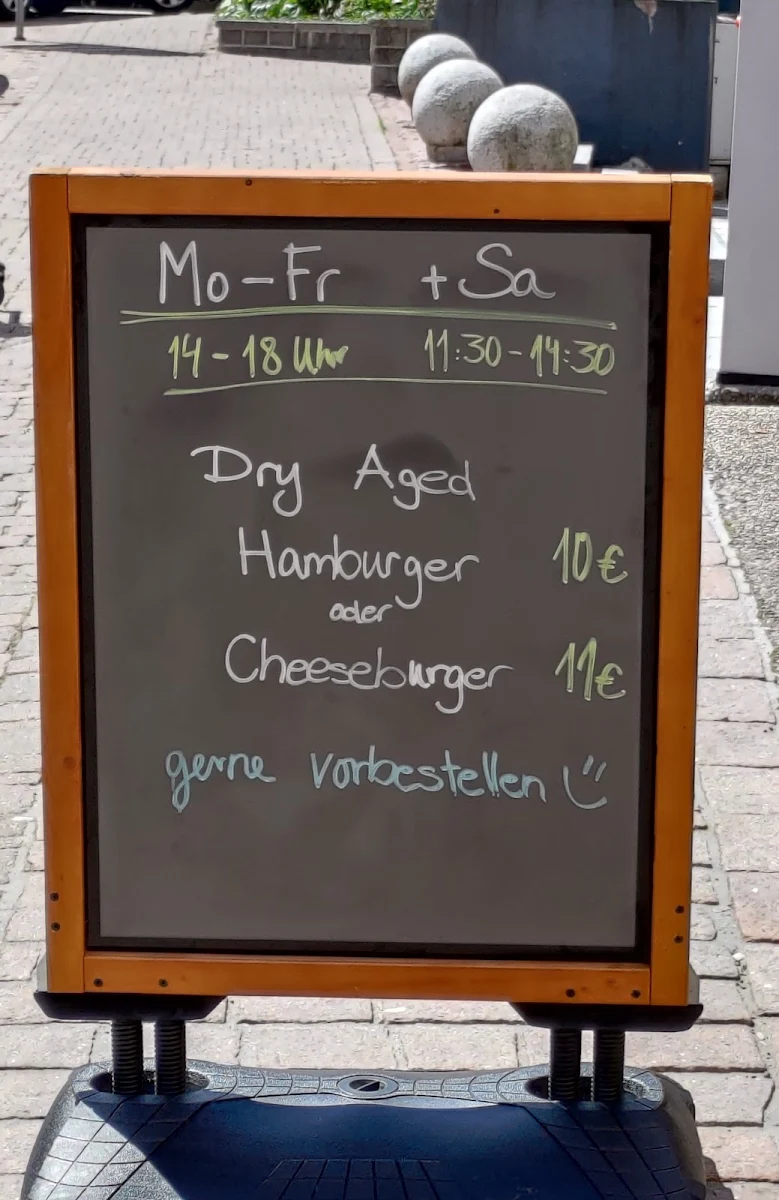 Mo-Fr + Sa
14-18 Uhr 11:30-14:30
Dry Aged
Hamburger 10€
oder
Cheeseburger 11€
gerne vorbestellen